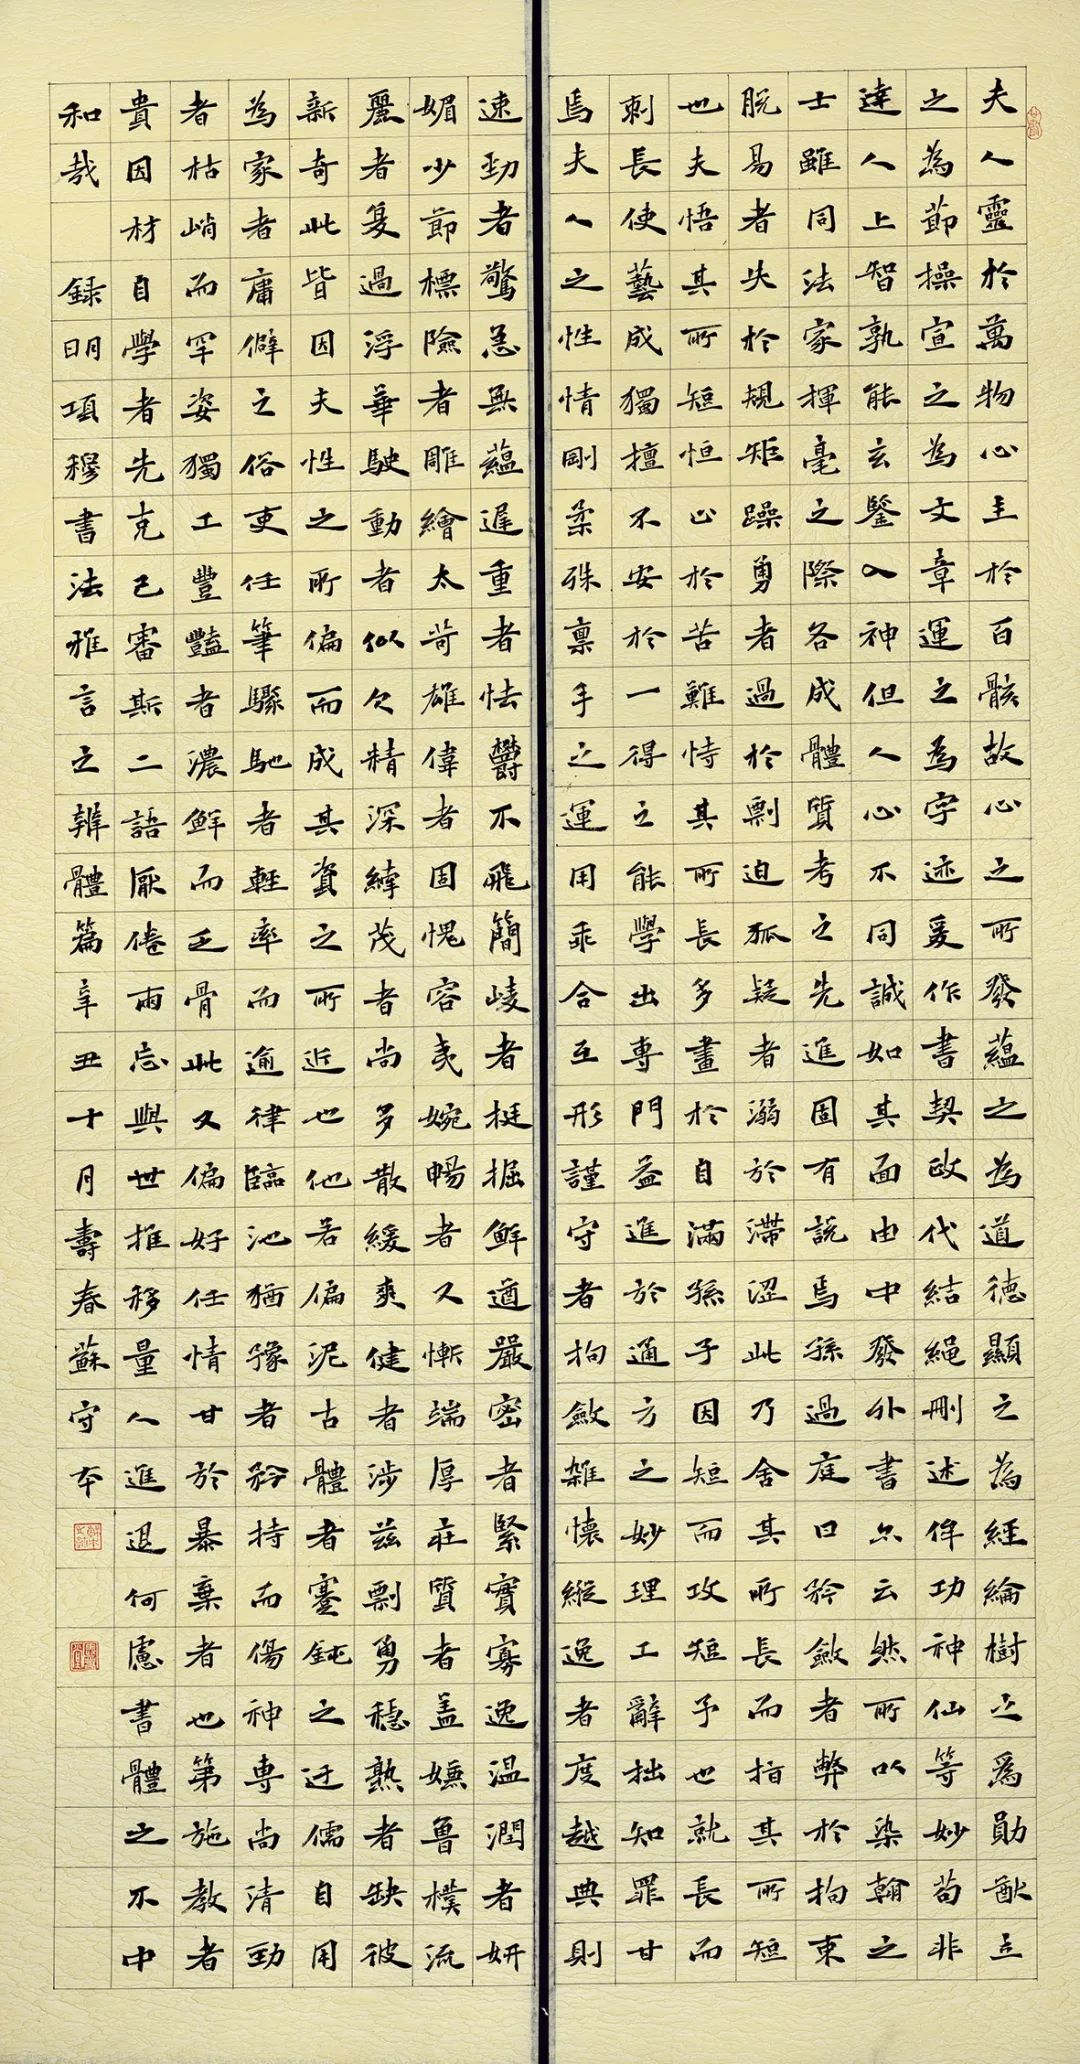 夫人靈於萬物心主於百骸故心之所發蘊之為道德顯之為經綸樹之爲勛猷立
之為節操宣之為文章運之爲字迹爰作書契政代結繩刪述侔功神仙等妙苟非
達人上智孰能玄鑒入神但人心不同誠如其面由中發外書亦云然所以染翰之
士雖同法家揮毫之際各成體質考之先進固有說焉孫過庭曰矜斂者弊於拘束
脫易者失於規矩躁勇者過於剽迫狐疑者溺於滯澀此乃舍其所長而指其所短
也夫悟其所短恒止於苦難恃其所長多畫於自滿孫子因短而攻短予也就長而
刺長使藝成獨擅不安於一得之能學出專門益進於通方之妙理工辭拙知罪甘
焉夫人之性情剛柔殊稟手之運用乖合互形謹守者拘斂雜懷縱逸者度越典則
速勁者驚急無蘊遲重者怯鬱不飛簡峻者挺掘鮮遒嚴密者緊實寡逸溫潤者妍
媚少節標險者雕繪太苛雄偉者固愧容夷婉暢者又慚端厚莊質者蓋嫌魯樸流
麗者复過浮華駛動者似欠精深纖茂者尚多散緩爽健者涉茲剽勇穩熟者缺彼
新奇此皆因夫性之所偏而成其資之所近也他若偏泥古體者蹇鈍之迂儒自用
為家者庸僻之俗吏任筆驟馳者輕率而逾律臨池猶豫者矜持而傷神專尚清勁
者枯峭而罕姿獨工豐豔者濃鮮而乏骨此又偏好任情甘於暴棄者也第施教者
貴因材自學者先克己審斯二語厭倦兩忘與世推移量人進退何慮書體之不中
和哉 錄明項穆書法雅言之辨體篇辛丑十月壽春蘇守本